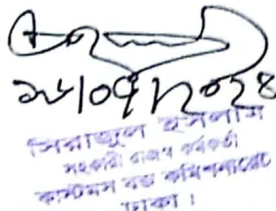 ২৮/০৫/২০২৪
সিরাজুল ইসলাম
সহকারী রাজস্ব কর্মকর্তা
কাস্টমস বন্ড কমিশনারেট
ঢাকা।